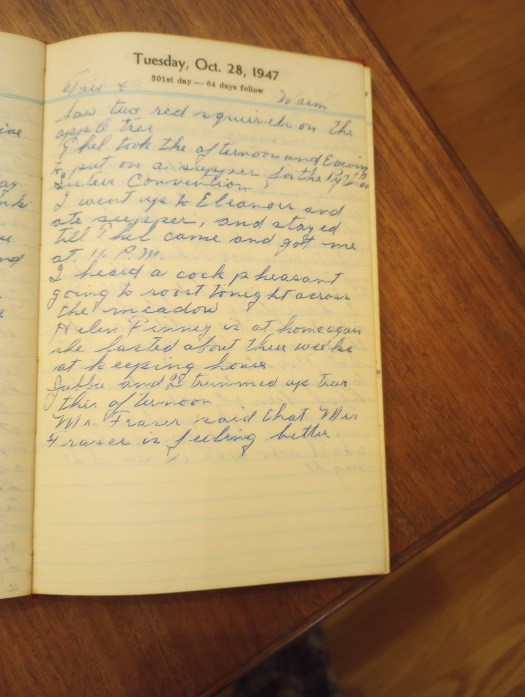 Tuesday, Oct. 28, 1947
301st day — 64 days follow
Fair & Warm
Saw two red squirrels on the
apple tree
Ethel took the afternoon and Evening
to put on a supper for the
Sisters Convention
I went up to Eleanors and
ate supper, and stayed
till Ethel came and got me
at 11 P.M.
I heard a cock pheasant
going to roost tonight across
the meadow
Helen Pinney is at home again
she lasted about three weeks
at keeping house
and I trimmed up tree
this afternoon
Mr. Fraser said that Mrs
Fraser is feeling better